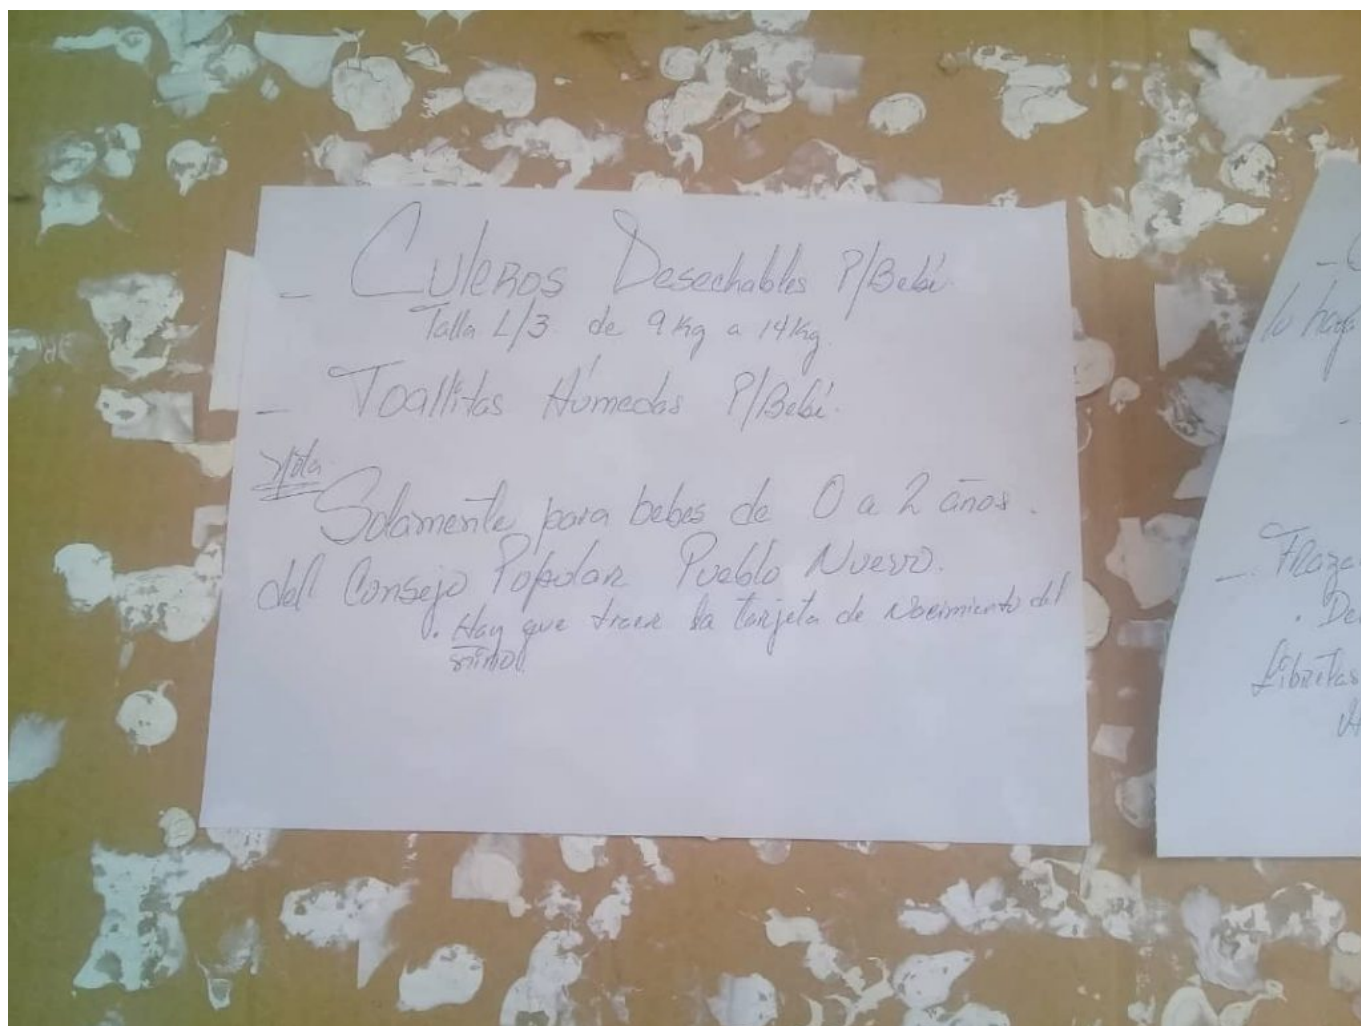 - Culeros Desechables P/Bebé.
Talla L/3 de 9 Kg a 14 Kg.
- Toallitas Húmedas P/Bebé.
Nota
Solamente para bebes de 0 a 2 años.
del Consejo Popular Pueblo Nuevo.
. Hay que traer la tarjeta de Nacimiento del
mismo.
lo haga
- Fraza
. De
Libretas